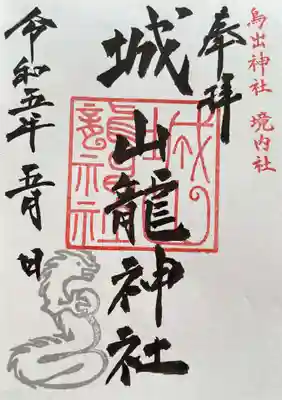 鳥出神社 境内社
奉拝
城山龍神社
城山龍神社
令和五年 五月 日